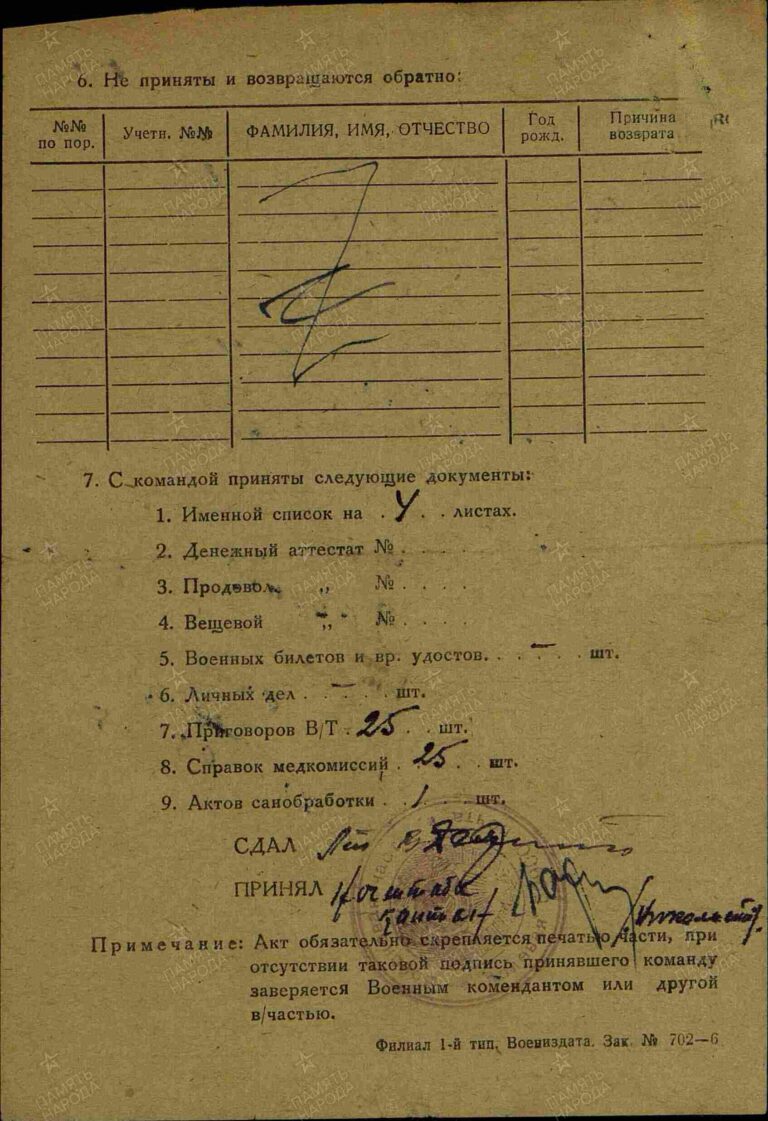 6. Не приняты и возвращаются обратно:
№№ по пор. Учетн. №№ ФАМИЛИЯ, ИМЯ, ОТЧЕСТВО Год рожд. Причина возврата
7. С командой приняты следующие документы:
1. Именной список на . 4 . . листах.
2. Денежный аттестат № . . . .
3. Продовол. „ № . . . .
4. Вещевой „ № . . . .
5. Военных билетов и вр. удостов. . — . . шт.
6. Личных дел . — . . . шт.
7. Приговоров В/Т . 25 . . шт.
8. Справок медкомиссий . 25 . . шт.
9. Актов санобработки . 1 . . . шт.
СДАЛ
ПРИНЯЛ Нач штаба
капитан
Примечание: Акт обязательно скрепляется печатью части, при
отсутствии таковой подпись принявшего команду
заверяется Военным комендантом или другой
в/частью.
Филиал 1-й тип. Воениздата. Зак. № 702—6
ПАМЯТЬ НАРОДА